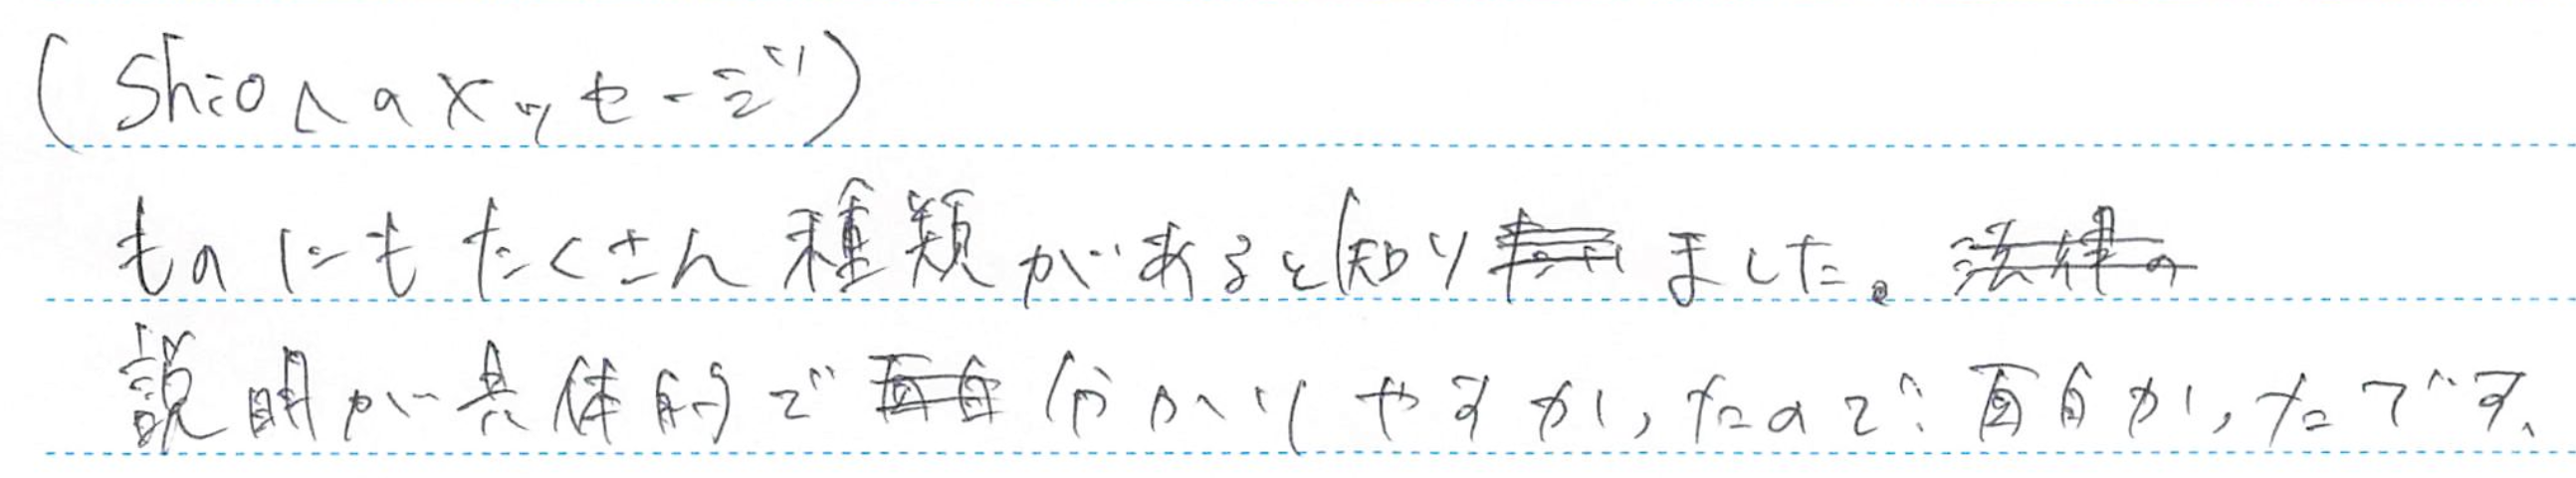 (Shioへのメッセージ)
ものにもたくさん種類があると知りました。法律の
説明が具体的で面白分かりやすかったので面白かったです。